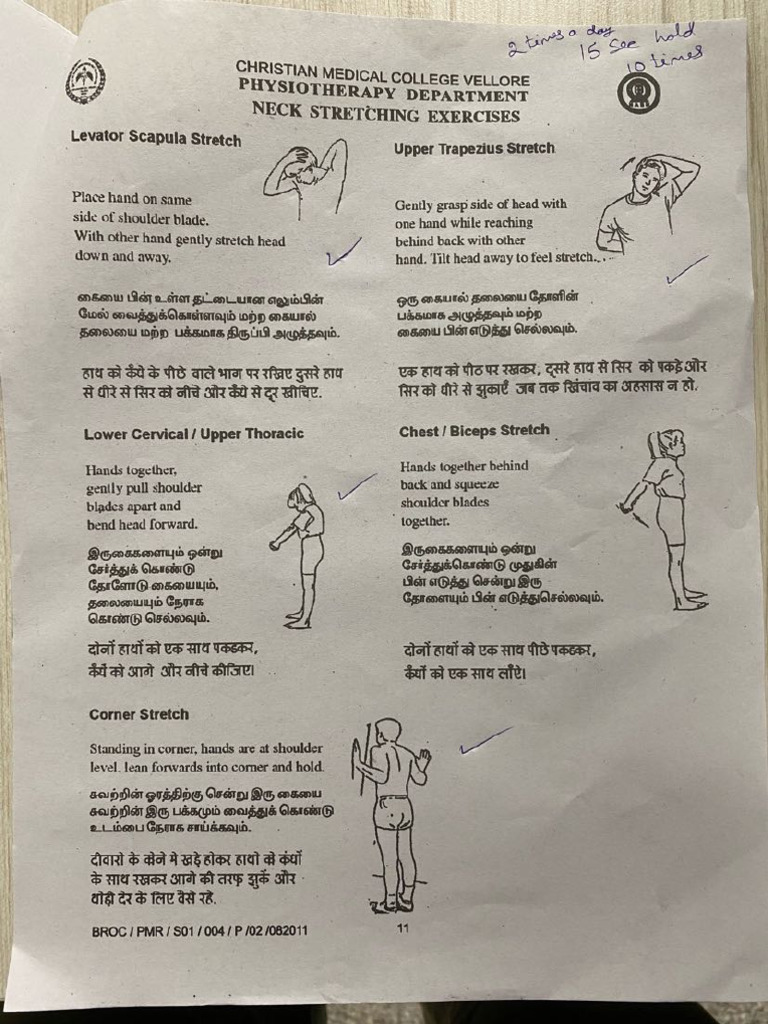 2 times a day
15 sec hold
10 times
CHRISTIAN MEDICAL COLLEGE VELLORE
PHYSIOTHERAPY DEPARTMENT
NECK STRETCHING EXERCISES
Levator Scapula Stretch
Place hand on same
side of shoulder blade.
With other hand gently stretch head
down and away.
கையை பின் உள்ள தட்டையான எலும்பின்
மேல் வைத்துக்கொள்ளவும் மற்ற கையால்
தலையை மற்ற பக்கமாக திருப்பி அழுத்தவும்.
हाथ को कँधे के पीछे वाले भाग पर रखिए दुसरे हाथ
से धीरे से सिर को नीचे और कँधे से दूर खीचिए.
Upper Trapezius Stretch
Gently grasp side of head with
one hand while reaching
behind back with other
hand. Tilt head away to feel stretch...
ஒரு கையால் தலையை தோளின்
பக்கமாக அழுத்தவும் மற்ற
கையை பின் எடுத்து செல்லவும்.
एक हाथ को पीठ पर रखकर, दूसरे हाथ से सिर को पकड़े ओर
सिर को धीरे से झुकाएँ जब तक खिंचाव का अहसास न हो.
Lower Cervical / Upper Thoracic
Hands together,
gently pull shoulder
blades apart and
bend head forward.
இருகைகளையும் ஒன்று
சேர்த்துக் கொண்டு
தோளோடு கையையும்,
தலையையும் நேராக
கொண்டு செல்லவும்.
दोनों हाथों को एक साथ पकडकर,
कँधे को आगे और नीचे कीजिए।
Chest / Biceps Stretch
Hands together behind
back and squeeze
shoulder blades
together.
இருகைகளையும் ஒன்று
சேர்த்துக்கொண்டு முதுகின்
பின் எடுத்து சென்று இரு
தோளையும் பின் எடுத்துசெல்லவும்.
दोनों हाथों को एक साथ पीछे पकडकर,
कँधों को एक साथ लाँऐ।
Corner Stretch
Standing in corner, hands are at shoulder
level. lean forwards into corner and hold.
சுவற்றின் ஓரத்திற்கு சென்று இரு கையை
சுவற்றின் இரு பக்கமும் வைத்துக் கொண்டு
உடம்பை நேராக சாய்க்கவும்.
दीवारो के कोने मे खड़े होकर हाथो को कंधों
के साथ रखकर आगे की तरफ झुकें और
थोड़ी देर के लिए वैसे रहे.
BROC / PMR / S01 / 004 / P /02 /082011
11